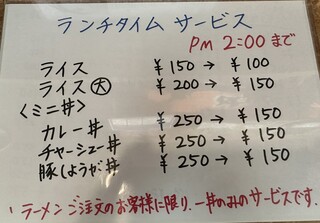 ランチタイム サービス
PM 2:00 まで
ライス ¥150→ ¥100
ライス大 ¥200→ ¥150
<ミニ丼>
カレー丼 ¥250→ ¥150
チャーシュー丼 ¥250→ ¥150
豚しょうが丼 ¥250→ ¥150
ラーメンご注文のお客様に限り、一丼のみのサービスです。